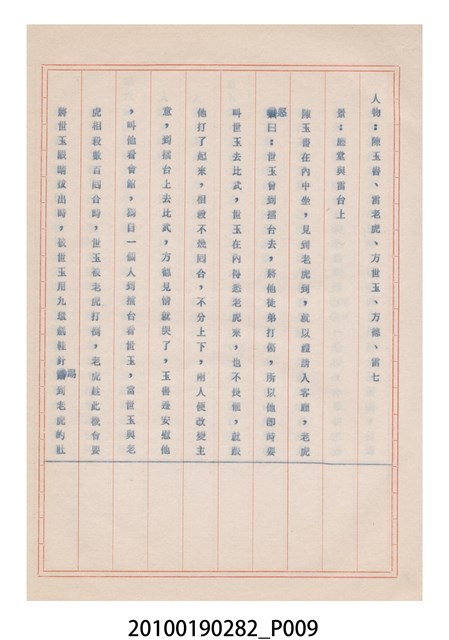 人物：陳玉書、雷老虎、方世玉、方德、雷七
景：廳堂與雷台上
陳玉書在內中坐，見到老虎到，就以禮請入客廳，老虎
怒曰：世玉曾到擂台去，將他徒弟打傷，所以他即時要
叫世玉去比武，世玉在內得悉老虎來，也不畏懼，就跟
他打了起來，相殺不幾回合，不分上下，兩人便改變主
意，到擂台上去比武，方德見情就哭了，玉書遂安慰他
，叫他看會館，獨自一個人到擂台看世玉，當世玉與老
虎相殺數百回合時，世玉被老虎打倒，老虎趁此機台要
將世玉眼睛拔出時，被世玉用九環劍鞋針踢到老虎的肚
20100190282_P009